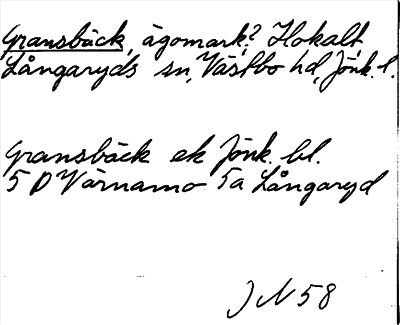 Gransbäck, ägomark? Hokalt,
Långaryds sn, Västbo hd, Jönk. l.
Gransbäck ek Jönk. bl.
5 D Värnamo 5a Långaryd
J N 58